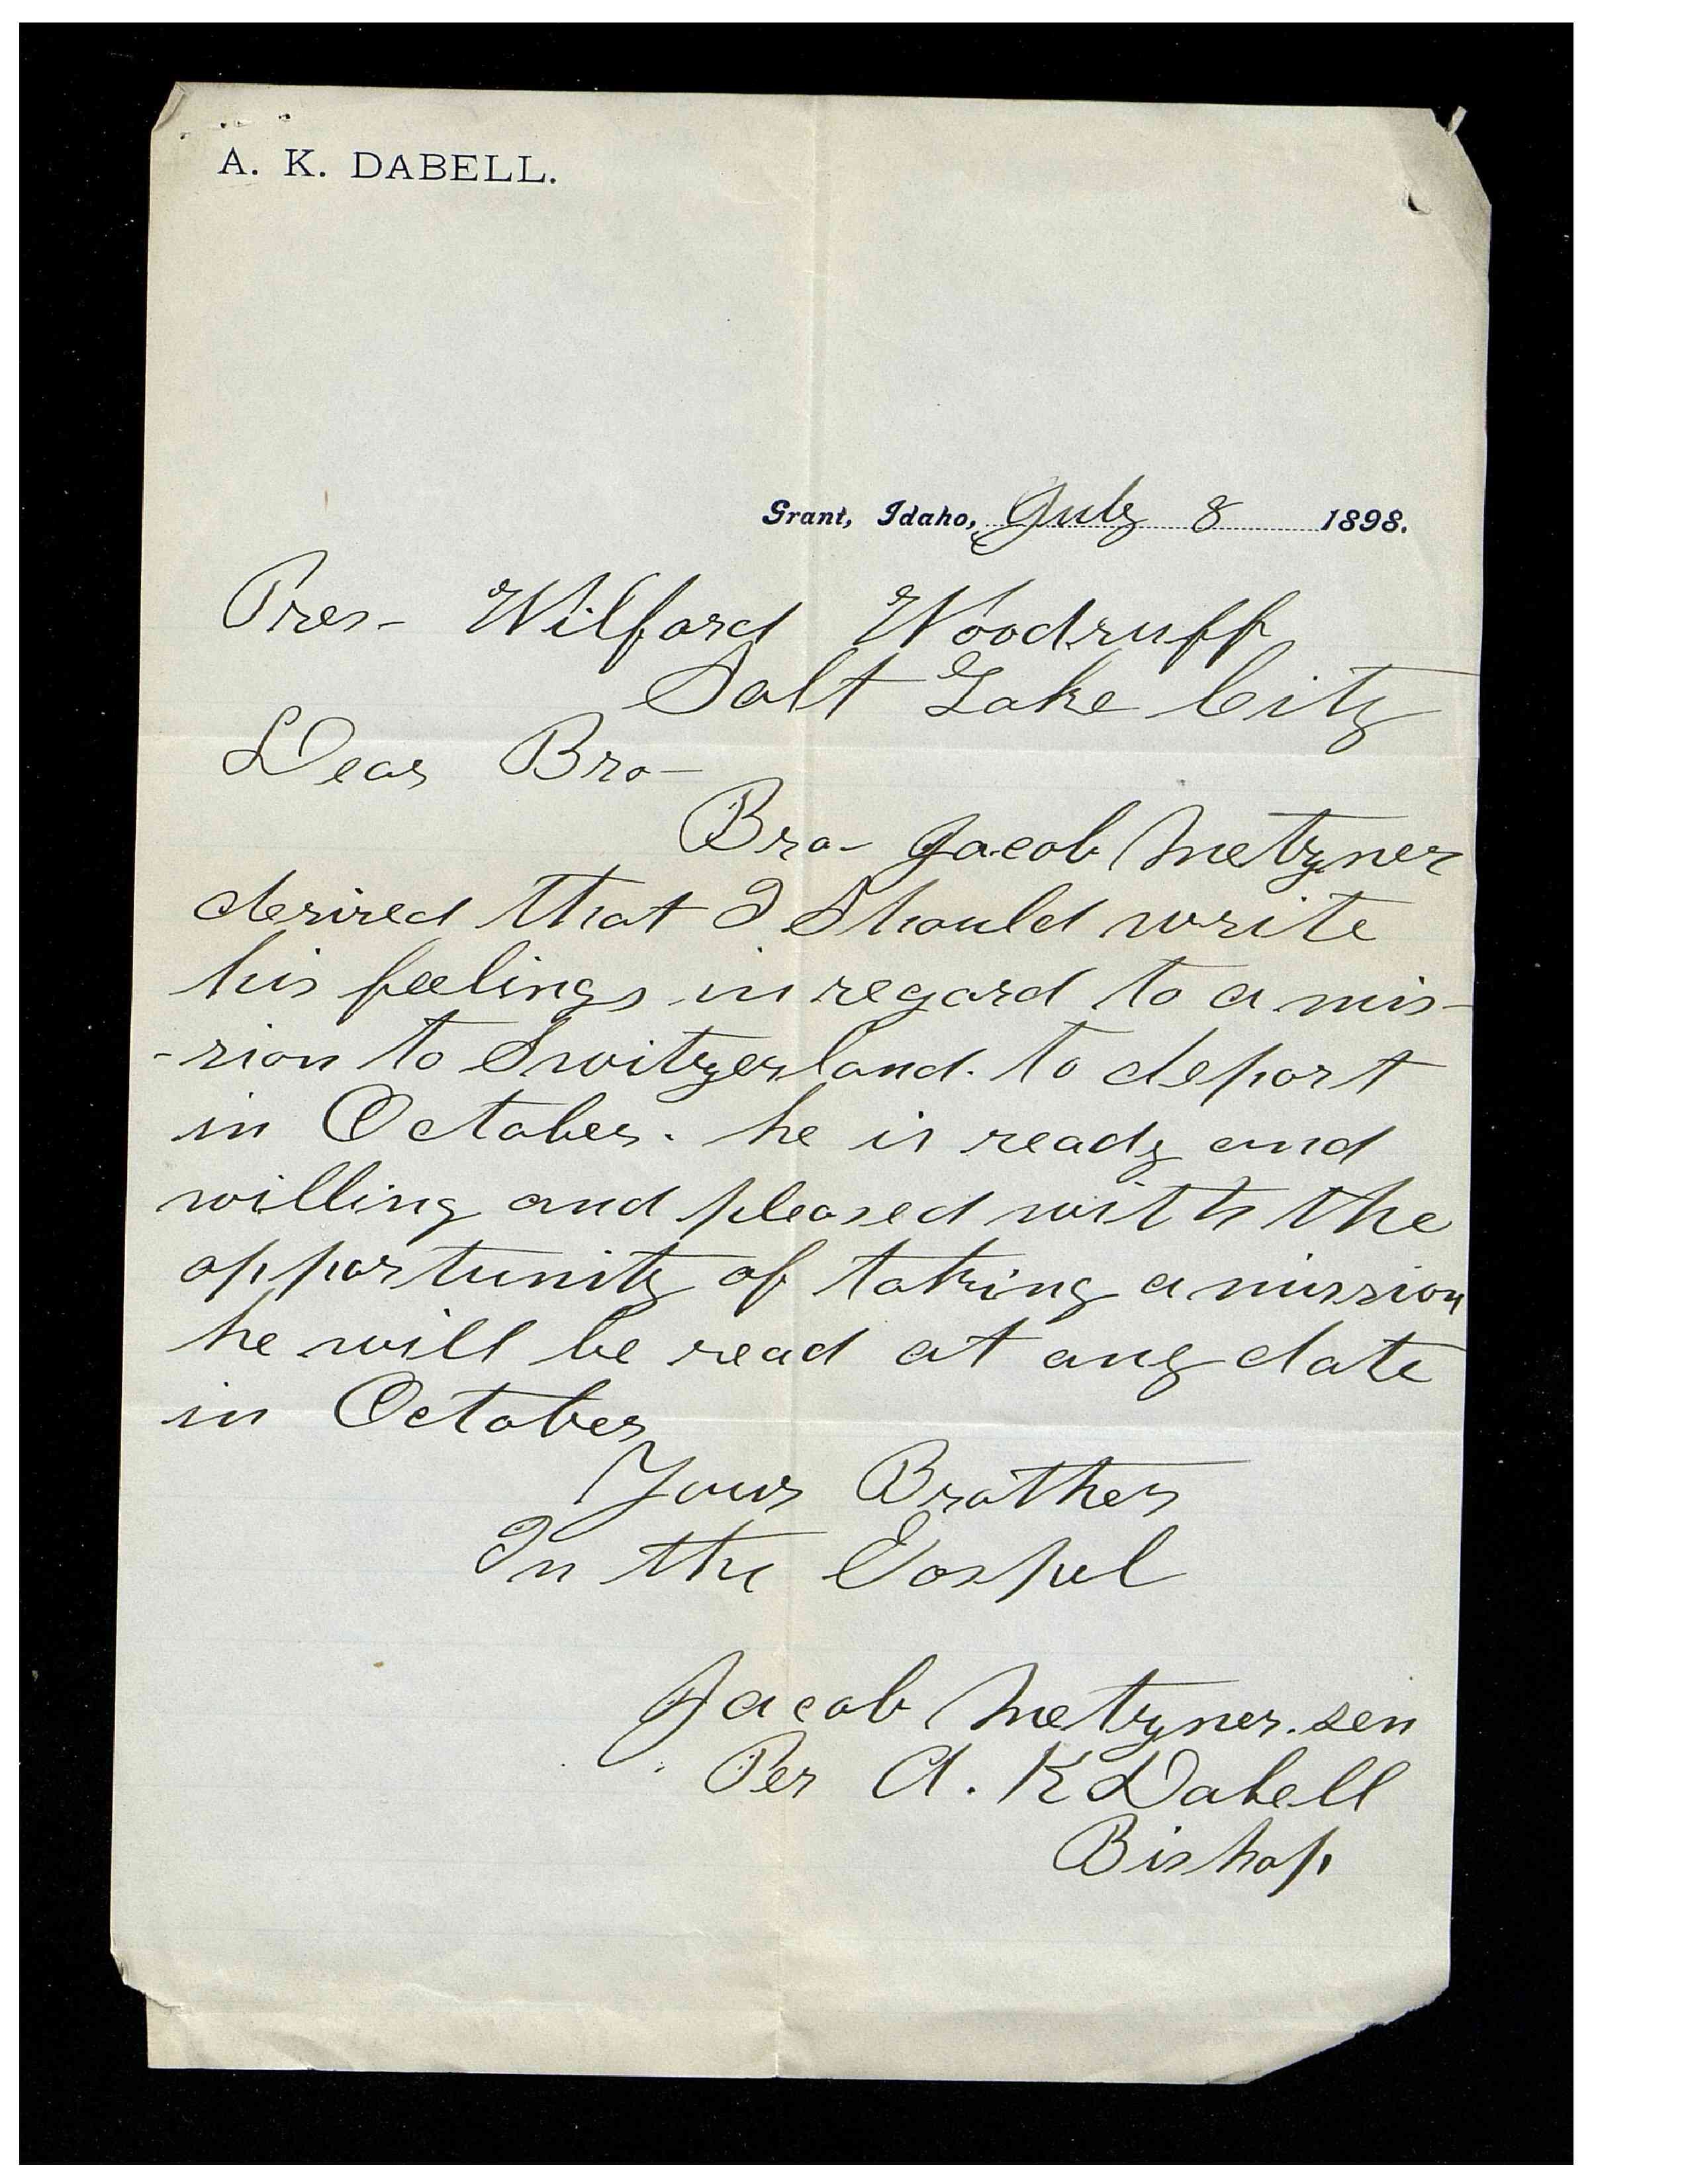 A. K. DABELL.
Grant, Idaho, July 8 1898.
Pres- Wilford Woodruff
Salt Lake City
Dear Bro-
Bro- Jacob Metzner
desired that I Should write
his feelings in regard to a mis-
-sion to Switzerland. to depart
in October. he is ready and
willing and pleased with the
opportunity of taking a mission
he will be read at any date
in October
Your Brother
In the Gospel
Jacob Metzner. sen
Per A. K Dabell
Bishop